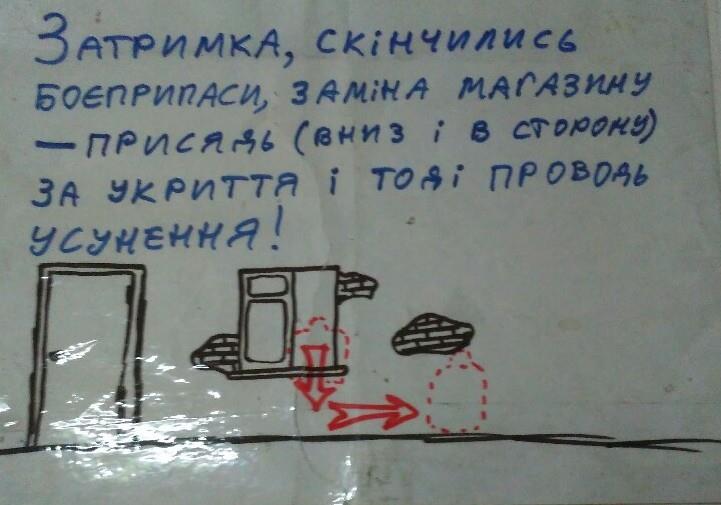 Затримка, скінчились
боєприпаси, заміна магазину
— присядь (вниз і в сторону)
за укриття і тоді проводь
усунення!